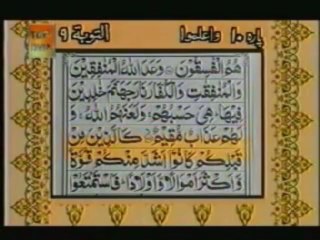 پارہ ١٠ واعلموا التوبة ٩
هُمُ الْفٰسِقُوْنَ ۞ وَعَدَ اللّٰهُ الْمُنٰفِقِيْنَ
وَالْمُنٰفِقٰتِ وَالْكُفَّارَ نَارَ جَهَنَّمَ خٰلِدِيْنَ
فِيْهَا ؕ هِيَ حَسْبُهُمْ ۚ وَلَعَنَهُمُ اللّٰهُ ۚ وَ
لَهُمْ عَذَابٌ مُّقِيْمٌ ۞ كَالَّذِيْنَ مِنْ
قَبْلِكُمْ كَانُوْۤا اَشَدَّ مِنْكُمْ قُوَّةً
وَّاَكْثَرَ اَمْوَالًا وَّاَوْلَادًا ؕ فَاسْتَمْتَعُوْا